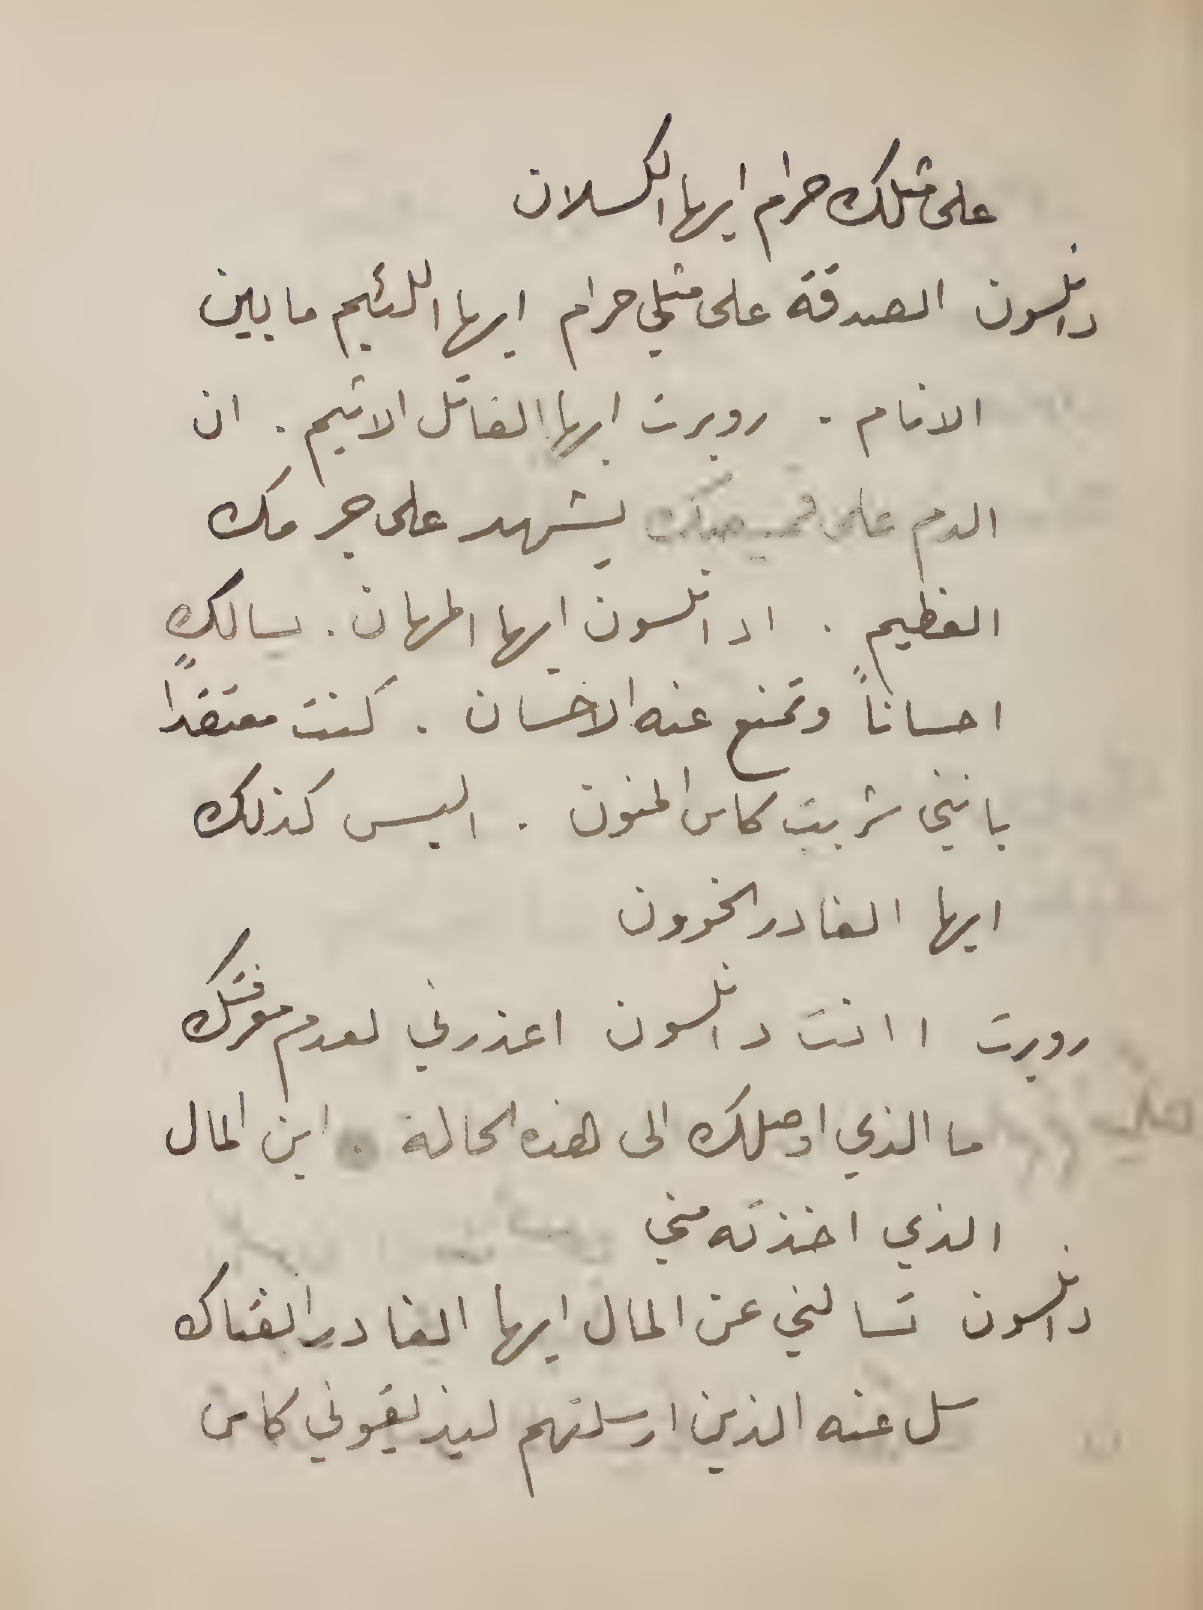 على مثلك حرام ايها الكسلان
دانلسون الصدقة على مثلي حرام ايها اللئيم ما بين
الانام . روبرت ايها القاتل الاثيم . ان
الدم على قميصك يشهد على جرمك
العظيم . ا دانلسون ايها المهان . يسالك
احساناً وتمنع عنه الاحسان . كنت معتقداً
بانني شربت كاس المنون . اليس كذلك
ايها الغادر الخوون
روبرت اانت دانلسون اعذرني لعدم معرفتك
ما الذي اوصلك الى هذه الحالة . اين المال
الذي اخذته مني
دانلسون تسالني عن المال ايها الغادر الفتاك
سل عنه الذين ارسلتهم ليذيقوني كاس